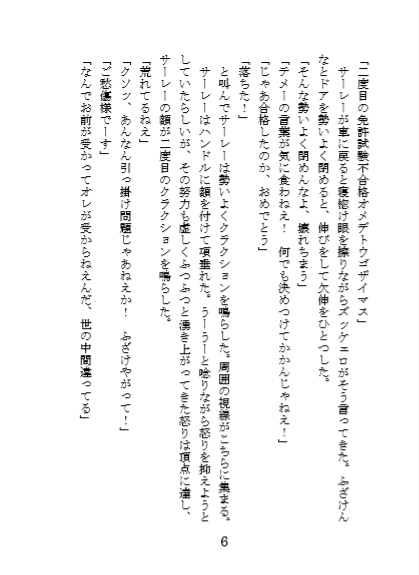 「二度目の免許試験不合格オメデトウゴザイマス」
　サーレーが車に戻ると寝惚け眼を擦りながらズッケェロがそう言ってきた。ふざけん
なとドアを勢いよく閉めると、伸びをして欠伸をひとつした。
「そんな勢いよく閉めんなよ、壊れちまう」
「テメーの言葉が気に食わねえ！　何でも決めつけてかかんじゃねえ！」
「じゃあ合格したのか、おめでとう」
「落ちた！」
　と叫んでサーレーは勢いよくクラクションを鳴らした。周囲の視線がこちらに集まる。
　サーレーはハンドルに額を付けて項垂れた。うーうーと唸りながら怒りを抑えようと
していたらしいが、その努力も虚しくふつふつと湧き上がってきた怒りは頂点に達し、
サーレーの額が二度目のクラクションを鳴らした。
「荒れてるねえ」
「クソッ、あんなん引っ掛け問題じゃあねえか！　ふざけやがって！」
「ご愁傷様でーす」
「なんでお前が受かってオレが受からねえんだ、世の中間違ってる」
6